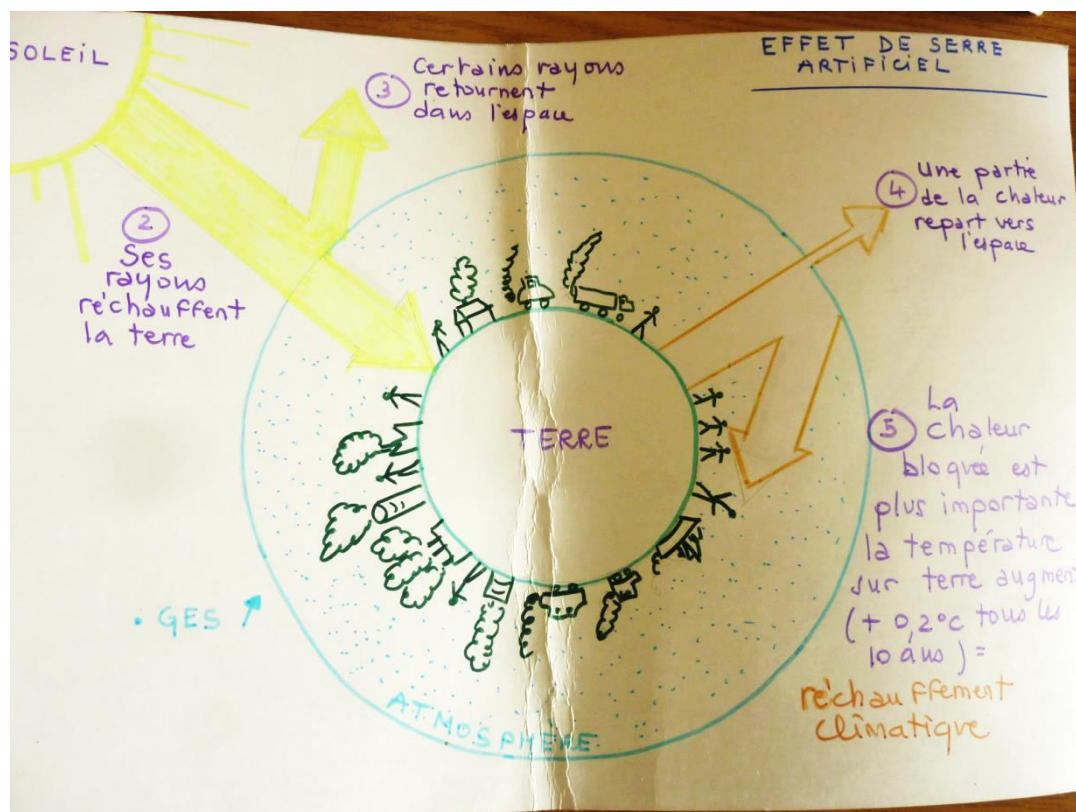 SOLEIL
EFFET DE SERRE
ARTIFICIEL
3 Certains rayons
retournent
dans l'espace
2
Ses
rayons
réchauffent
la terre
4 Une partie
de la chaleur
repart vers
l'espace
TERRE
5 La
chaleur
bloquée est
plus importante
la température
sur terre augmen
(+ 0,2°C tous les
10 ans) =
réchauffement
climatique
. GES
ATMOSPHÈRE